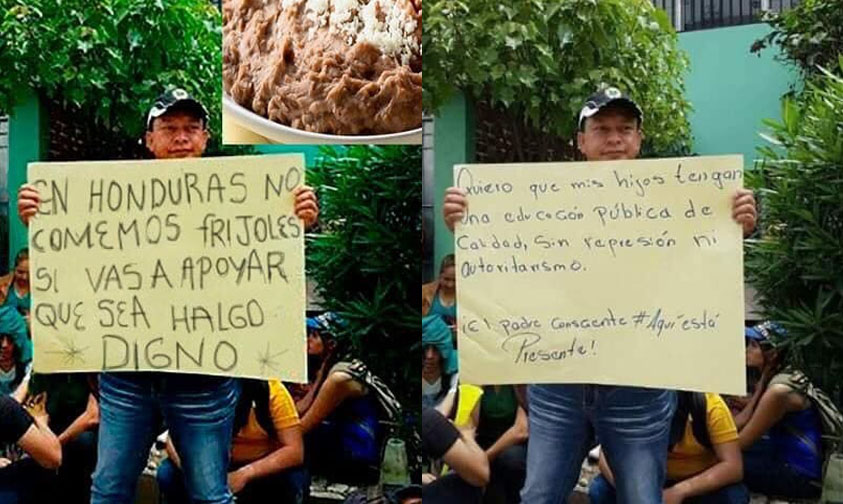 EN HONDURAS NO
COMEMOS FRIJOLES
SI VAS A APOYAR
QUE SEA HALGO
DIGNO
Quiero que mis hijos tengan
una educación pública de
Calidad, Sin represión ni
autoritarismo.
¡El padre consciente #Aquí está
Presente!